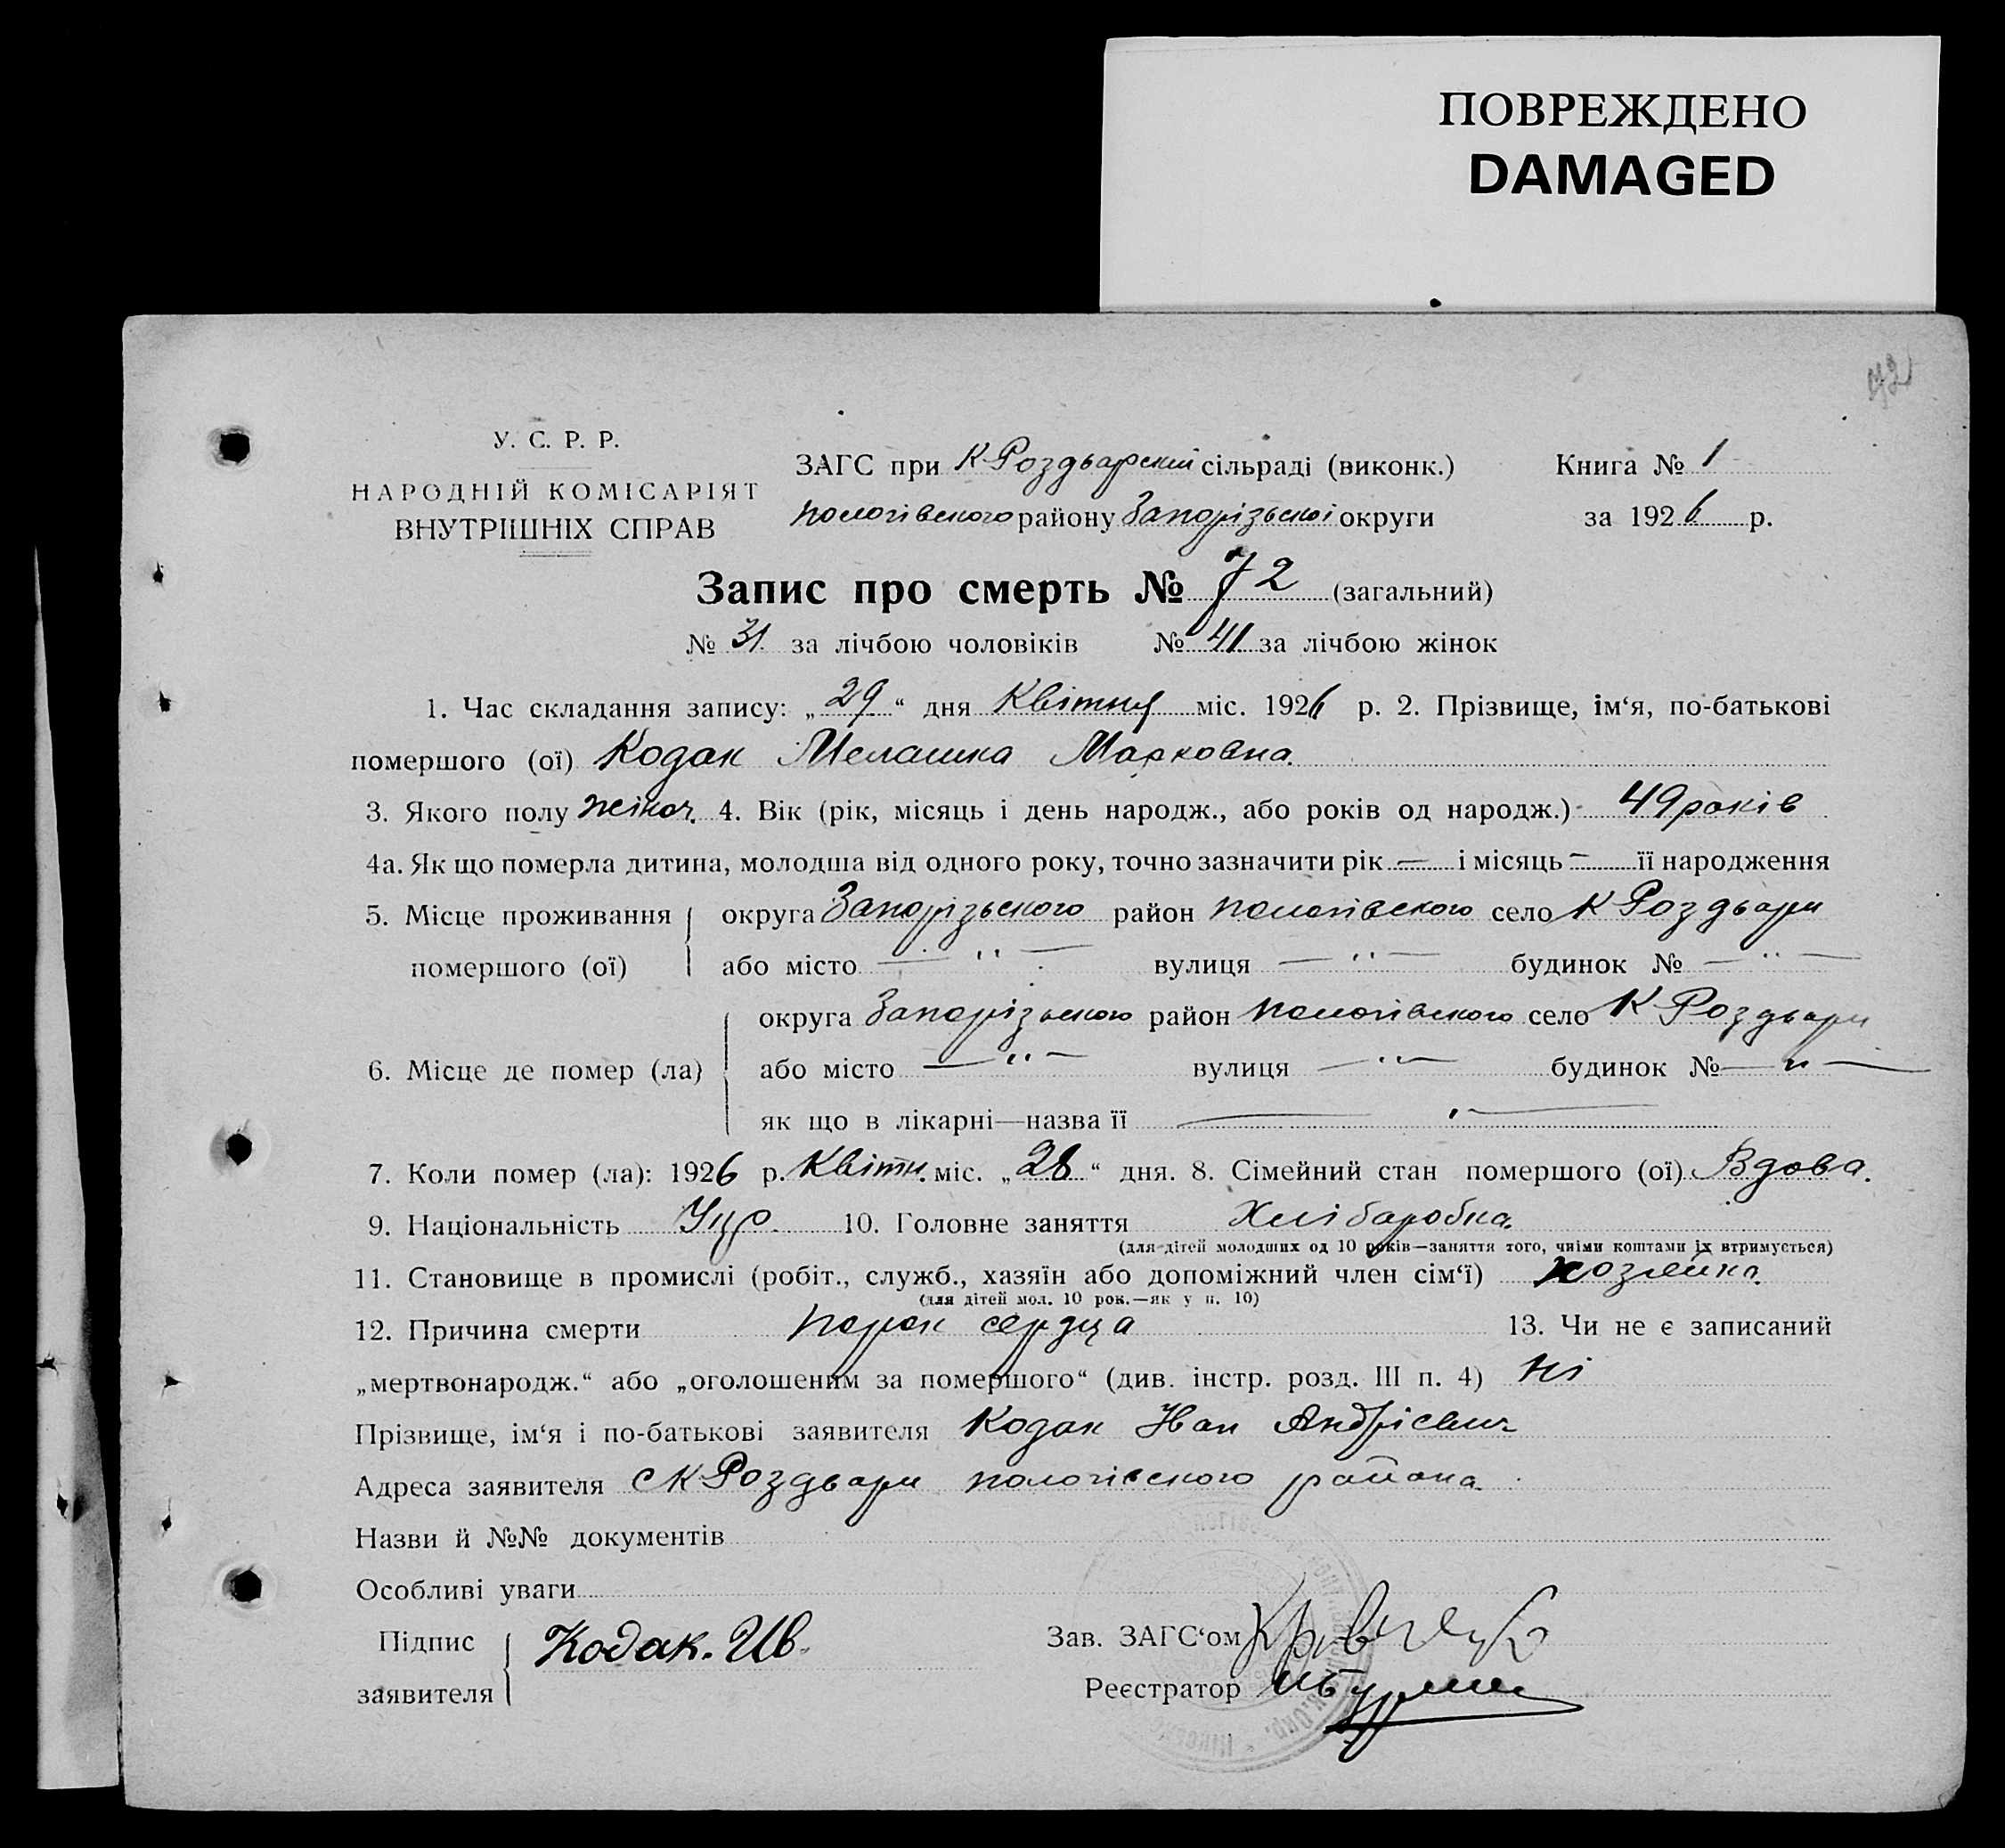 ПОВРЕЖДЕНО
DAMAGED
72
У. С. Р. Р.
НАРОДНІЙ КОМІСАРІЯТ
ВНУТРІШНІХ СПРАВ
ЗАГС при К Роздьарский сільраді (виконк.)
Пологівского району Запорізьскоі округи
Книга № 1
за 1926 р.
Запис про смерть № 72 (загальний)
№ 31 за лічбою чоловіків № 41 за лічбою жінок
1. Час складання запису: „29“ дня Квітня міс. 1926 р. 2. Прізвище, ім‘я, по-батькові
помершого (ої) Кодак Мелашка Марковна.
3. Якого полу жіноч. 4. Вік (рік, місяць і день народж., або років од народж.) 49 років
4а. Як що померла дитина, молодша від одного року, точно зазначити рік — і місяць — її народження
5. Місце проживання помершого (ої) округа Запорізьского район Пологівского село К Роздьори
або місто — " — вулиця — " — будинок № — " —
6. Місце де помер (ла) округа Запорізьского район Пологівского село К Роздьори
або місто — " — вулиця — " — будинок № — " —
як що в лікарні—назва її — " —
7. Коли помер (ла): 1926 р. Квітн. міс. „28“ дня. 8. Сімейний стан помершого (ої) Вдова.
9. Національність Укр. 10. Головне заняття Хліборобка.
(для дітей молодших од 10 років—заняття того, чиїми коштами їх втримується)
11. Становище в промислі (робіт., служб., хазяїн або допоміжний член сім‘ї) хозяйка.
(для дітей мол. 10 рок.—як у п. 10)
12. Причина смерти порок сердца 13. Чи не є записаний
„мертвонародж.“ або „оголошеним за помершого“ (див. інстр. розд. III п. 4) Ні
Прізвище, ім‘я і по-батькові заявителя Кодак Иван Андрієвич
Адреса заявителя с К Роздьори пологівского района.
Назви й №№ документів
Особливі уваги
Підпис заявителя Кодак. Ив.
Зав. ЗАГС‘ом
Реєстратор